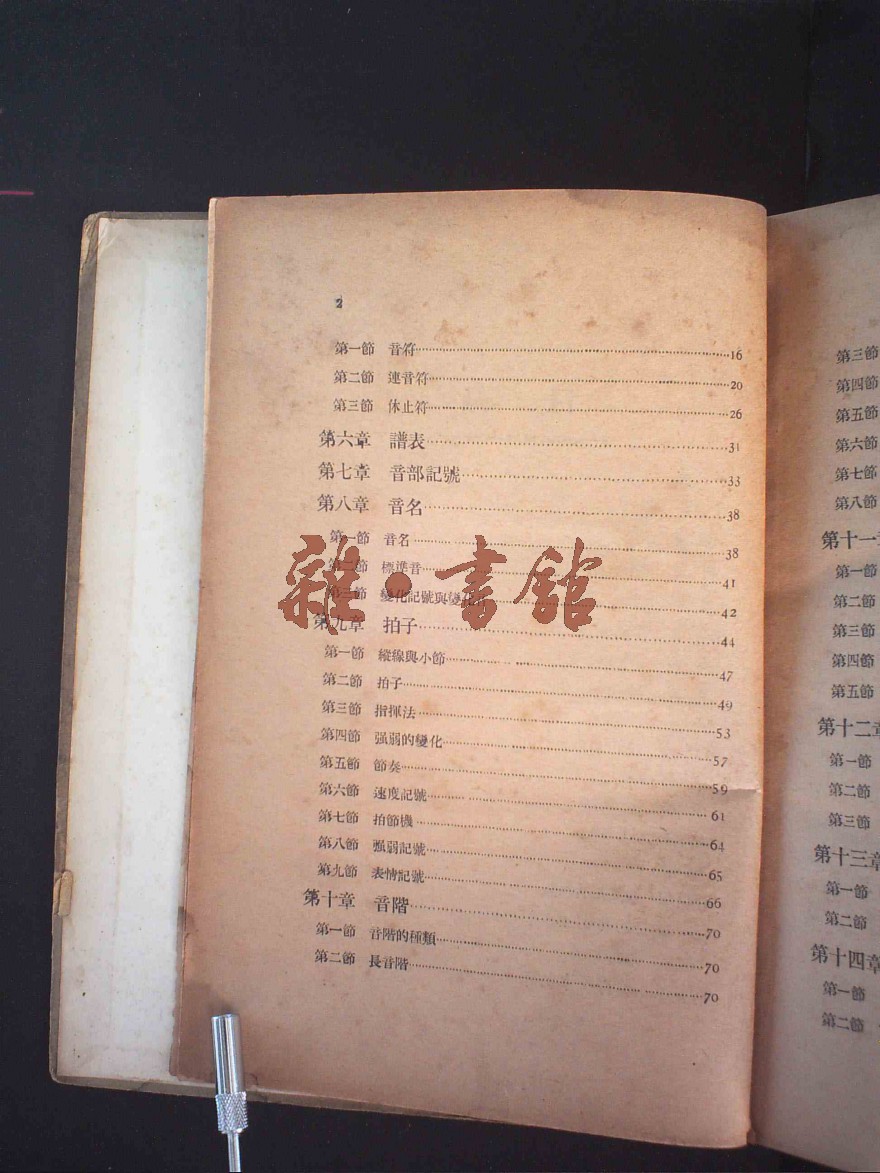 2
第一節 音符……16
第二節 連音符……20
第三節 休止符……26
第六章 譜表……31
第七章 音部記號……33
第八章 音名……38
第一節 音名……38
第二節 標準音……41
第三節 變化記號與變化音……42
第九章 拍子……44
第一節 縱線與小節……47
第二節 拍子……49
第三節 指揮法……53
第四節 强弱的變化……57
第五節 節奏……59
第六節 速度記號……61
第七節 拍節機……64
第八節 强弱記號……65
第九節 表情記號……66
第十章 音階……70
第一節 音階的種類……70
第二節 長音階……70
雜·書館
第三節
第四節
第五節
第六節
第七節
第八節
第十一章
第一節
第二節
第三節
第四節
第五節
第十二章
第一節
第二節
第三節
第十三章
第一節
第二節
第十四章
第一節
第二節